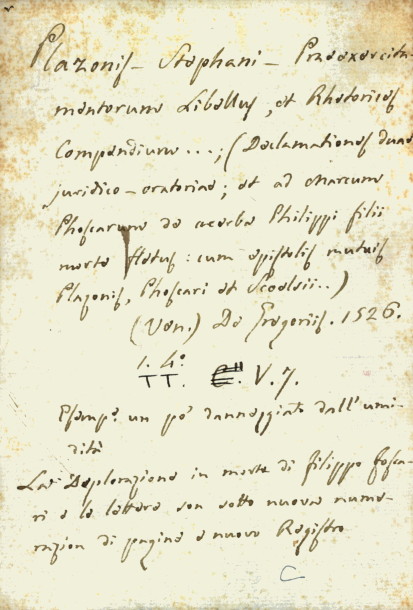 Plazonis - Stephani - Praeexercita-
mentorum Libellus, et Rhetorices
Compendium ...; (Declamationes duae
juridico-oratoriae; et ad Marcum
Phoscarum de acerba Philippi filii
morte fletus: cum epistolis mutuis
Plazonis, Phoscari et
(Ven.) De Gregoriis. 1526.
1. 4.°
TT. V. 7.
Esemp.e un po' danneggiato dall'umi-
dità
La Deplorazione in morte di Filippo Fosca-
ri e le lettere son sotto nuova nume-
razion di pagine e nuovo Registro
C